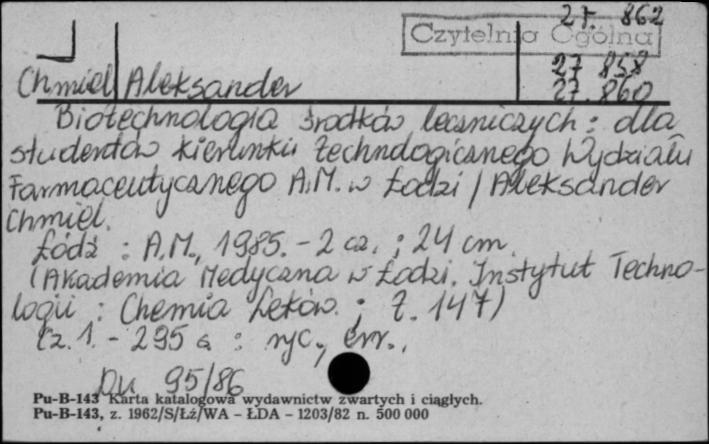 27. 862
Czytelnia Ogólna
27 858
Chmiel Aleksander 27.860
Biotechnologia środków leczniczych : dla
studentów kierunku technologicznego Wydziału
Farmaceutycznego A.M. w Łodzi / Aleksander
Chmiel.
Łódź : A.M., 1985. - 2 cz. ; 24 cm.
(Akademia Medyczna w Łodzi. Instytut Techno-
logii : Chemia Leków. ; Z. 147)
Cz. 1. - 295 s. : ryc., err.,
Du 95/86
Pu-B-143 Karta katalogowa wydawnictw zwartych i ciągłych.
Pu-B-143, z. 1962/S/Łź/WA – ŁDA – 1203/82 n. 500 000